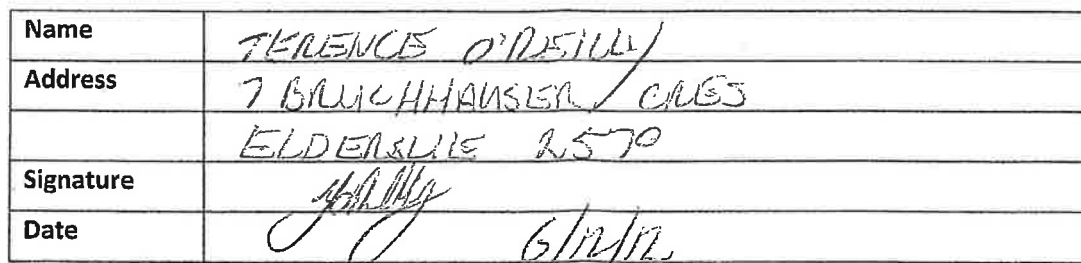 Name TERENCE O'REILLY
Address 7 BRUCHHAUSER CRES
ELDERSLIE 2570
Signature
Date 6/12/12.